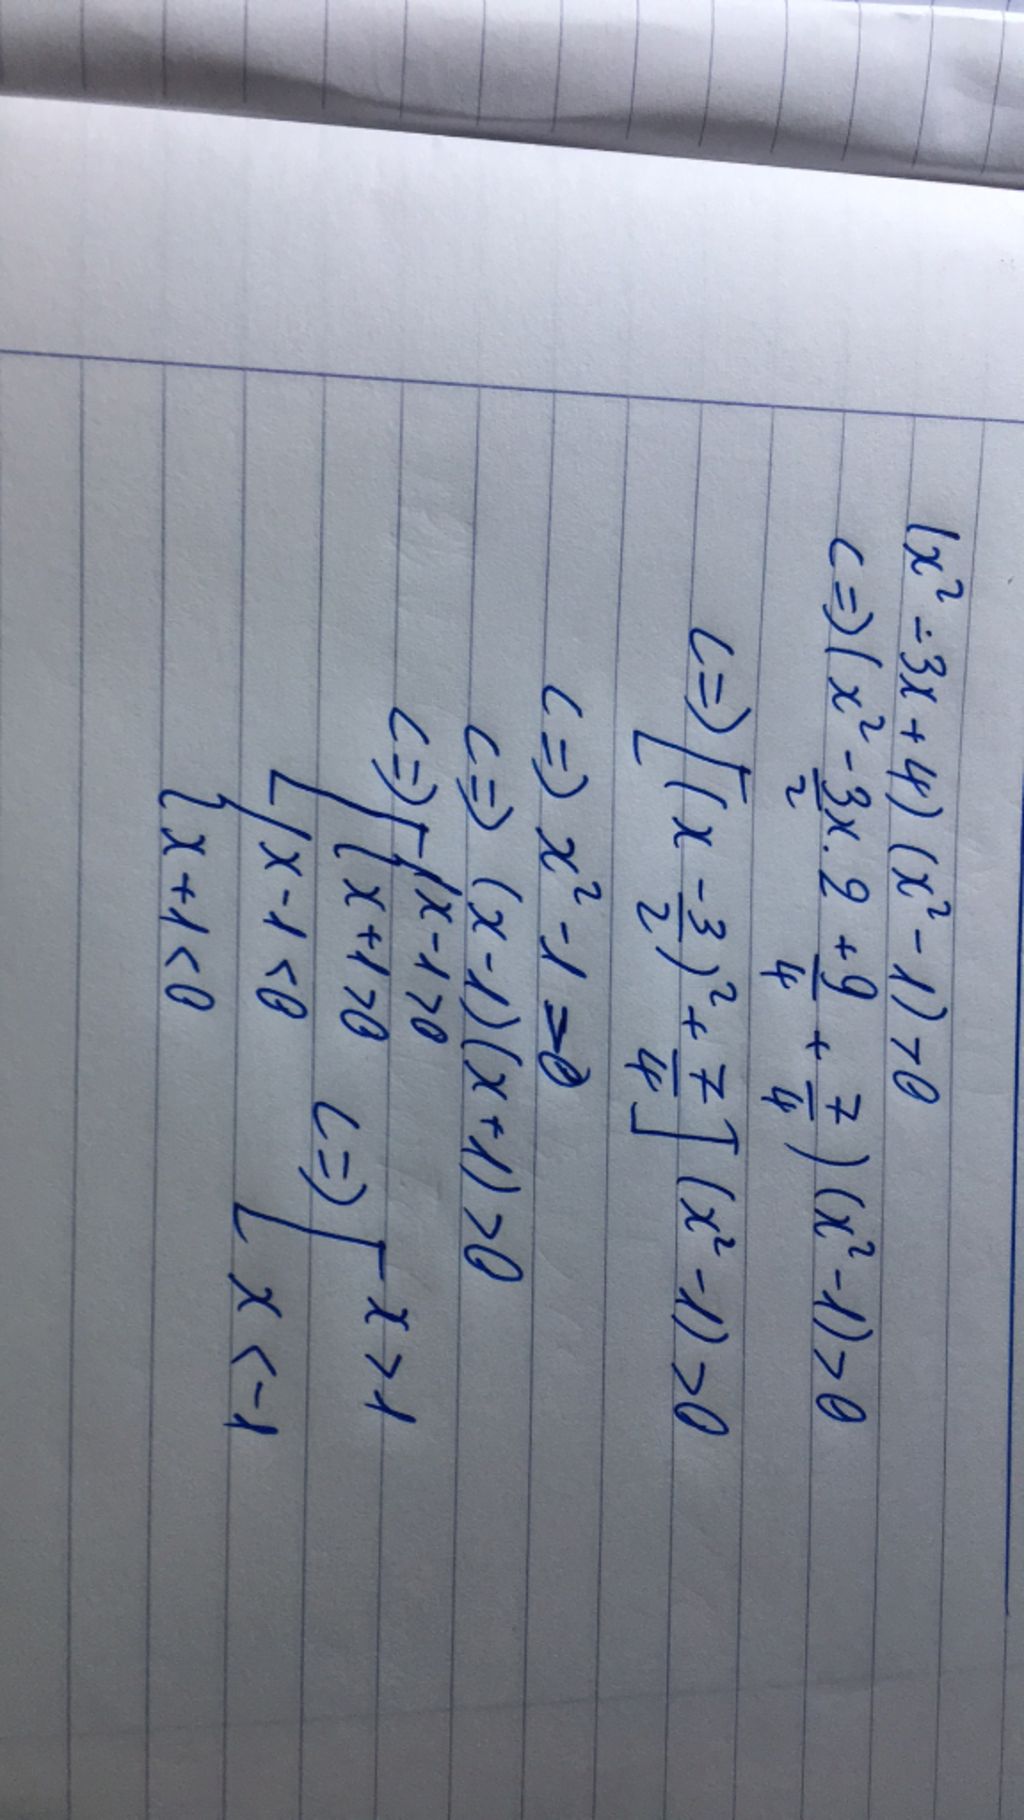 (x² - 3x + 4) (x² - 1) > 0
<=> (x² - 3/2 x . 2 + 9/4 + 7/4) (x² - 1) > 0
<=> [(x - 3/2)² + 7/4] (x² - 1) > 0
<=> x² - 1 > 0
<=> (x - 1) (x + 1) > 0
<=> [ { x - 1 > 0
x + 1 > 0
{ x - 1 < 0
x + 1 < 0
<=> [ x > 1
x < -1